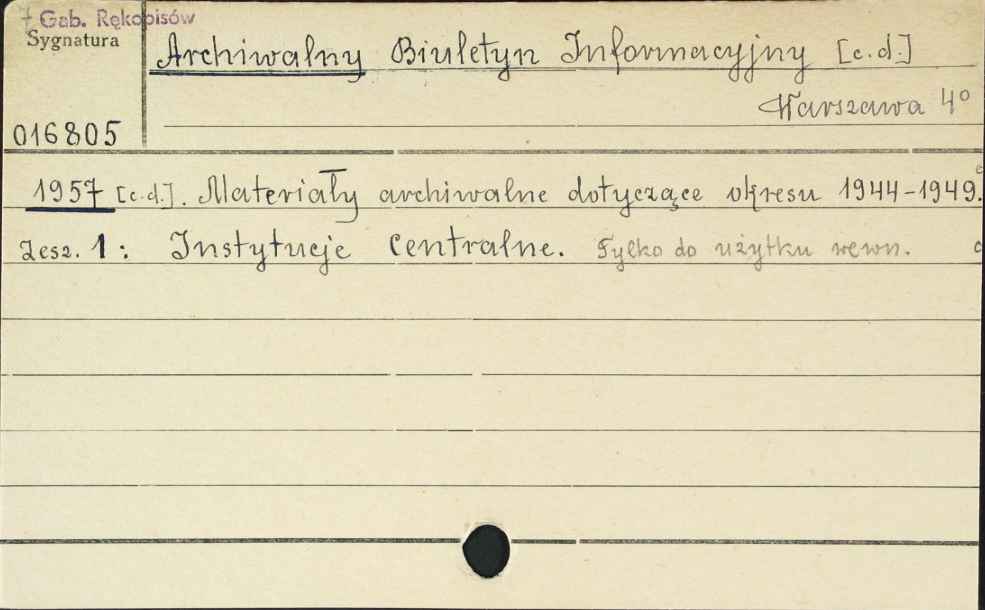 + Gab. Rękopisów
Sygnatura
Archiwalny Biuletyn Informacyjny [c.d.]
Warszawa 4°
016805
1957 [c.d.]. Materiały archiwalne dotyczące okresu 1944-1949.
Zesz. 1: Instytucje centralne. Tylko do użytku wewn.